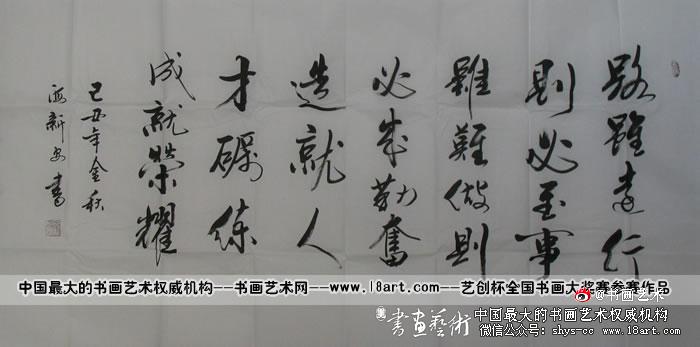 路雖遠行
則必至事
雖難做則
必成勤奮
造就人
才礪練
成就榮耀
己丑年金秋
新安書
中国最大的书画艺术权威机构---书画艺术网---www.18art.com---艺创杯全国书画大奖赛参赛作品
@书画艺术
書画藝術
中国最大的书画艺术权威机构
微信公众号: shys-cc www.18art.com